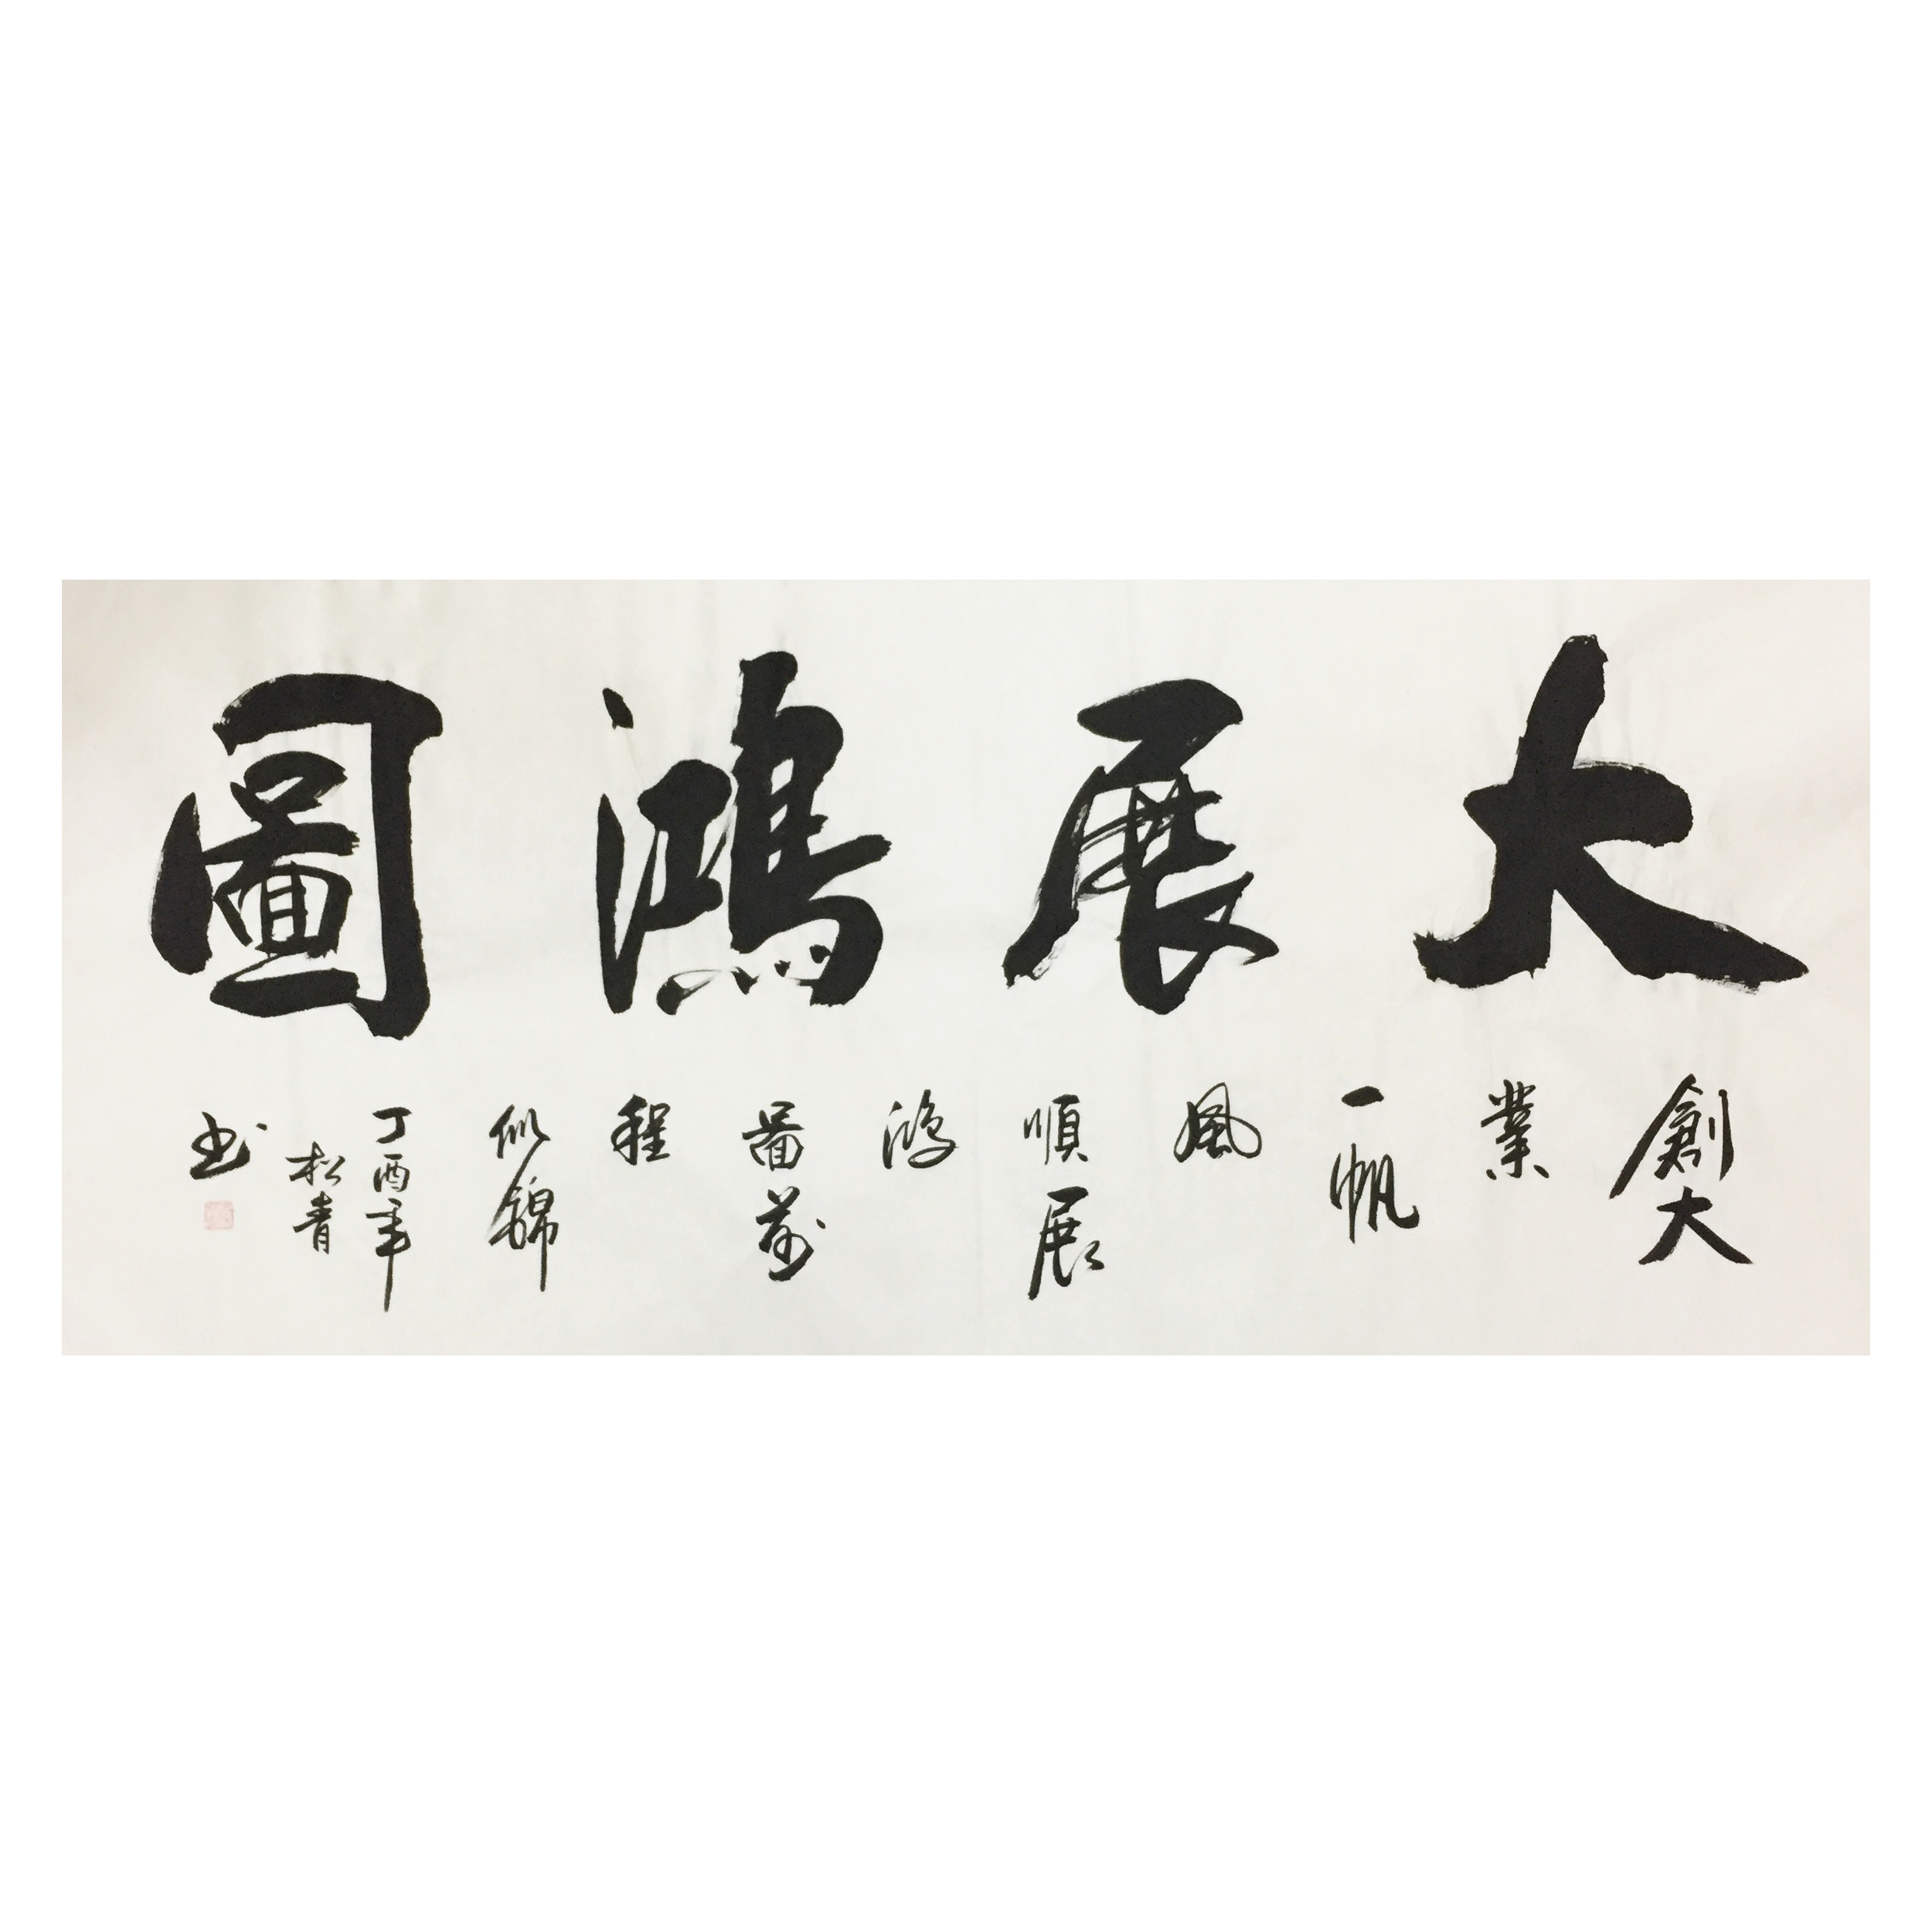 大展鴻圖
創大
業
一帆
風
順展
鴻
啚前
程
似錦
丁酉年
松青
书